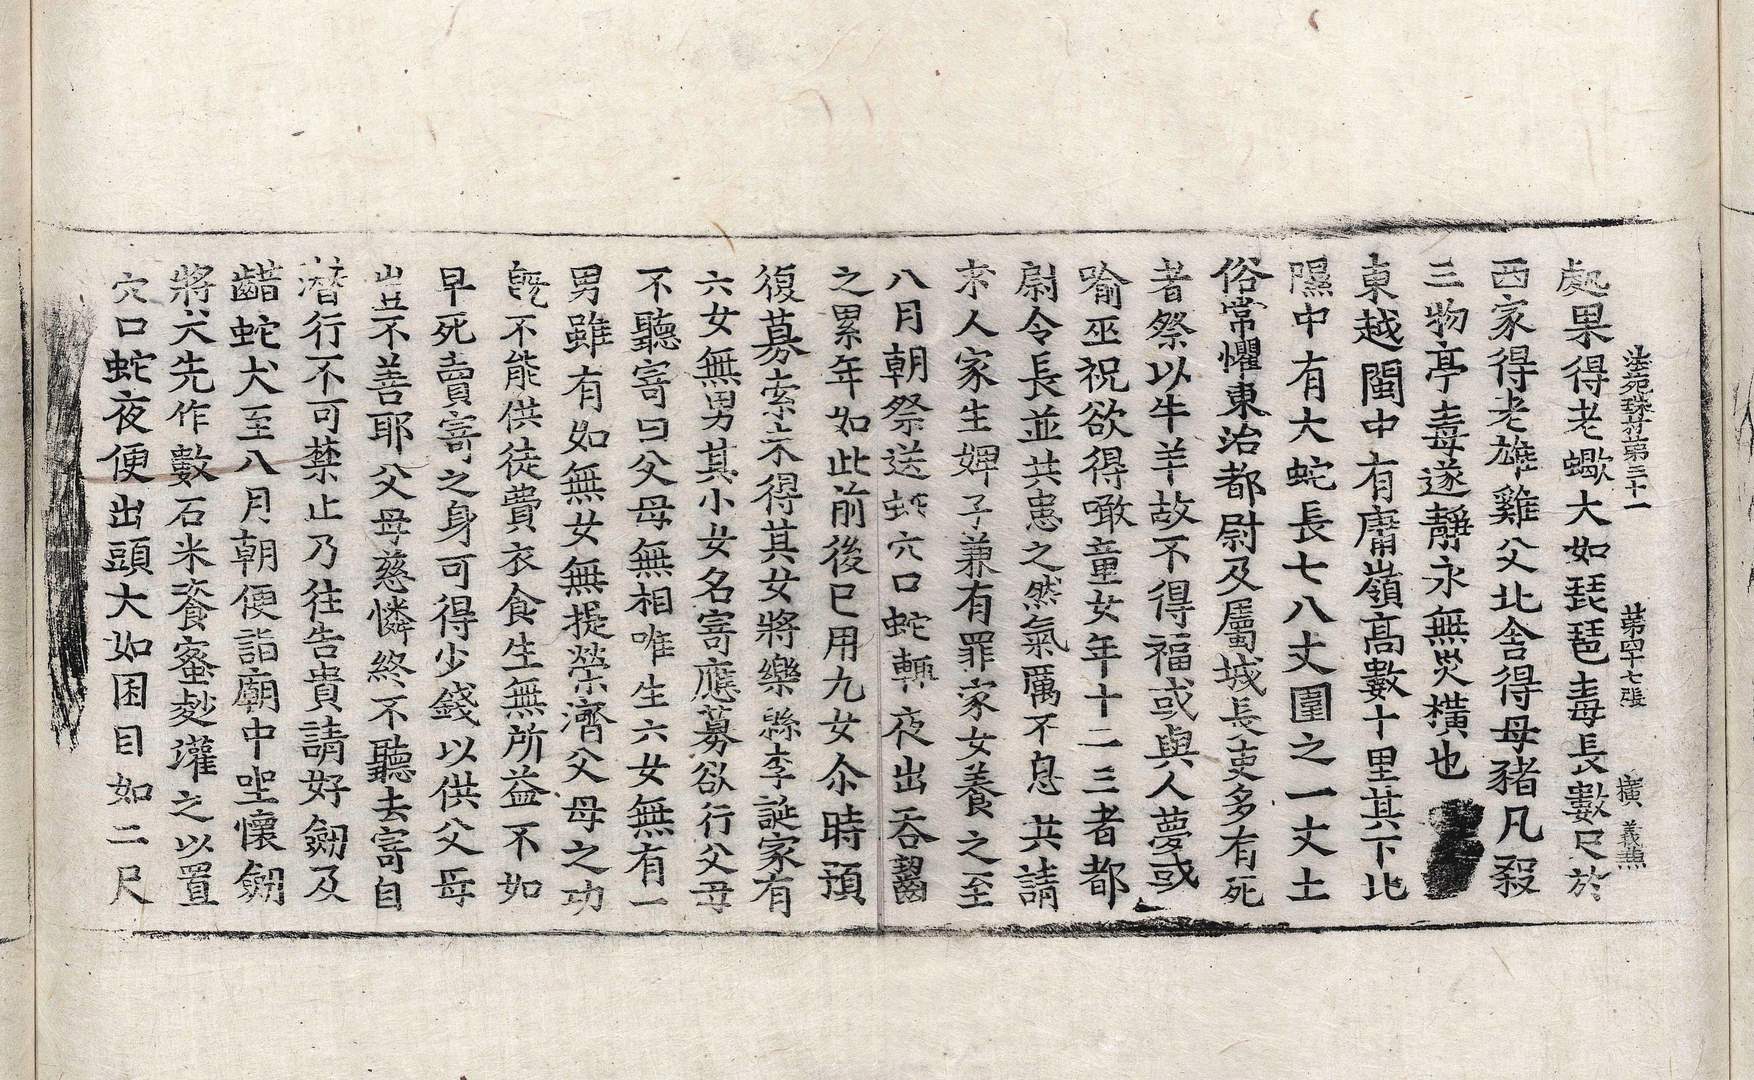 法苑珠林第三十一　第四十七張　橫　義
處果得老蠍大如琵琶毒長數尺於
西家得老雄雞父北舍得母豬凡殺
三物亭毒遂靜永無災橫也
東越閩中有庸嶺高數十里其下北
隰中有大蛇長七八丈圍之一丈土
俗常懼東治都尉及屬城長吏多有死
者祭以牛羊故不得福或與人夢或
喻巫祝欲得噉童女年十二三者都
尉令長並共患之然氣厲不息共請
求人家生婢子兼有罪家女養之至
八月朝祭送蛇穴口蛇輒夜出吞齧
之累年如此前後已用九女尒時預
復募索未得其女將樂縣李誕家有
六女無男其小女名寄應募欲行父母
不聽寄曰父母無相唯生六女無有一
男雖有如無女無提縈濟父母之功
旣不能供徒費衣食生無所益不如
早死賣寄之身可得少錢以供父母
豈不善耶父母慈憐終不聽去寄自
潛行不可禁止乃往告貴請好劒及
齰蛇犬至八月朝便詣廟中坐懷劒
將犬先作數石米餈蜜麨灌之以置
穴口蛇夜便出頭大如囷目如二尺